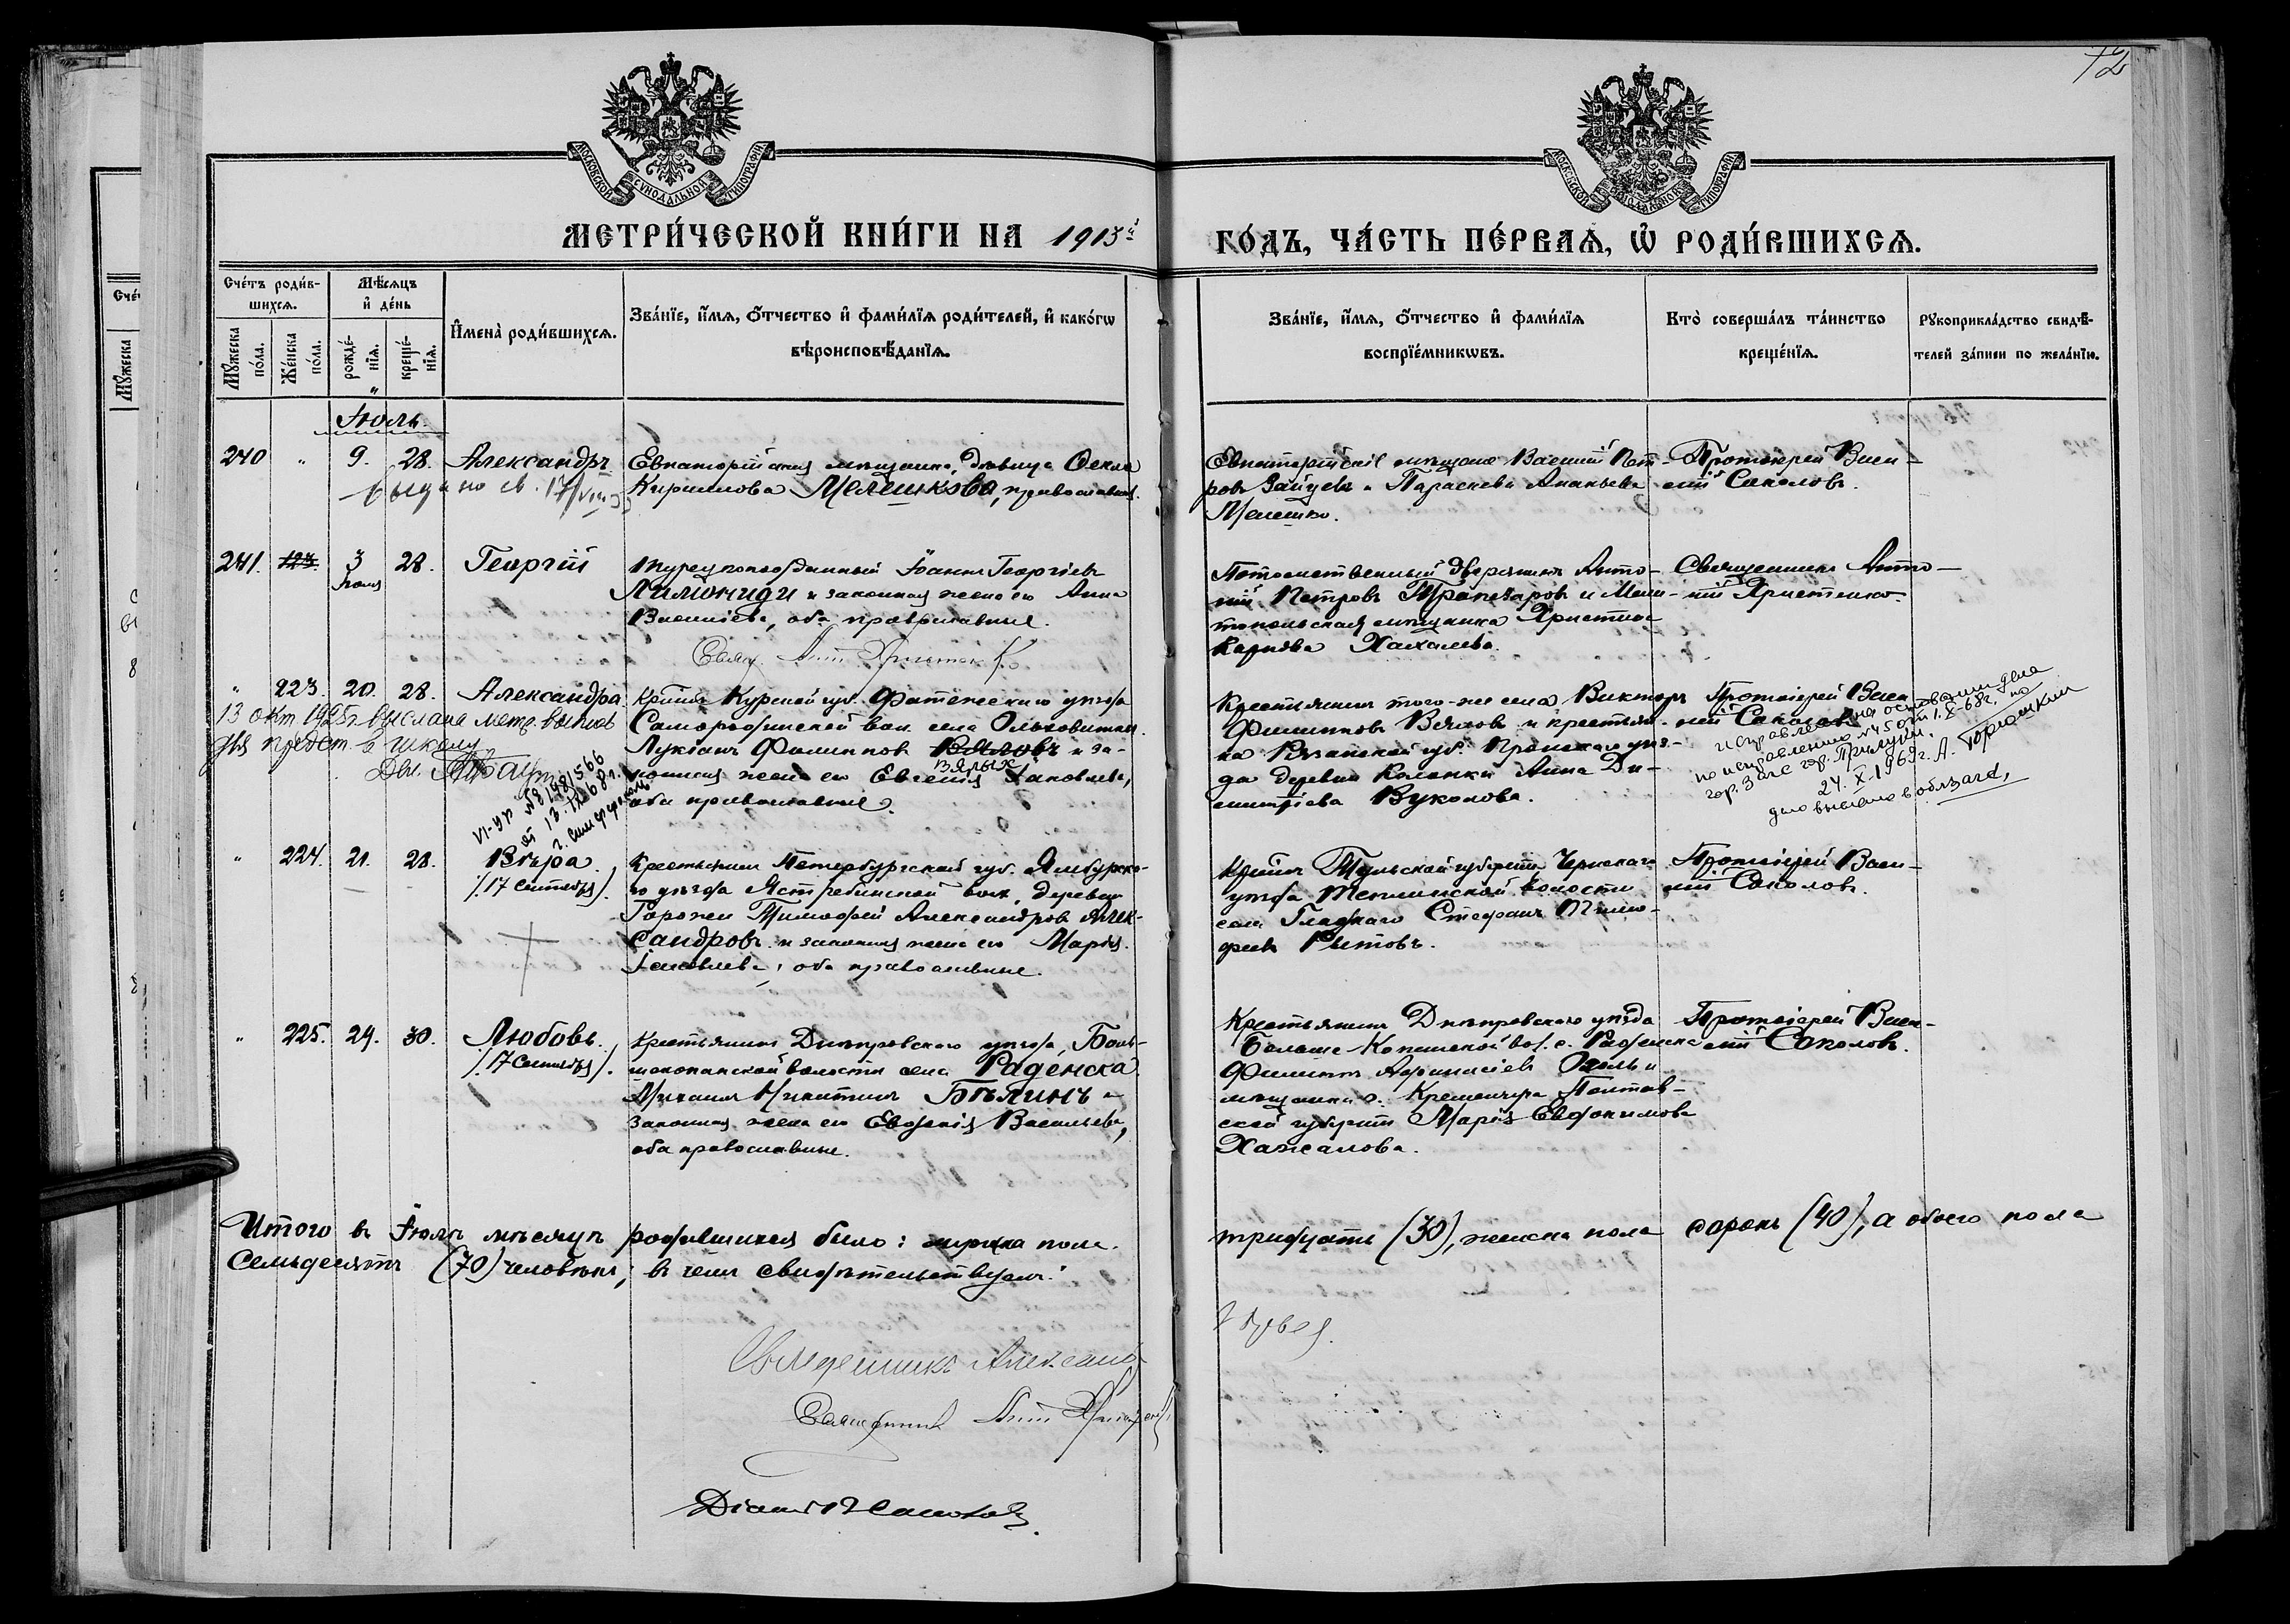 72
МОСКОВСКОЙ СѴНОДАЛЬНОЙ ТИПОГРАФІИ
МОСКОВСКОЙ СѴНОДАЛЬНОЙ ТИПОГРАФІИ
МЕТРИ́ЧЕСКОЙ КНИ́ГИ НА 1913й ГО́ДЪ, ЧА́СТЬ ПЕ́РВАѦ, Ѡ РОДИ́ВШИХСѦ.
Сче́тъ роди́вшихсѧ.
Мꙋ́жеска по́ла.
Же́нска по́ла.
Мѣ́сѧцъ и де́нь
рожде́нїѧ.
креще́нїѧ.
И҆мена̀ роди́вшихсѧ.
Зва́нїе, и҆́мѧ, ѻ҆́тчество и҆ фами́лїѧ роди́телей, и҆ како́гѡ
вѣроисповѣ́данїѧ.
Зва́нїе, и҆́мѧ, ѻ҆́тчество и҆ фами́лїѧ
воспрїе́мникѡвъ.
Кто̀ соверша́лъ та́инство
креще́нїѧ.
Рꙋкоприкла́дство свидѣ́телей за́писи по жела́нїю.
Іюль.
240 " 9. 28. Александръ
выдано св. 17/VIII
Евпаторійская мѣщанка, дѣвица Ѳекла
Кириллова Мелешкова, православная.
Евпаторійскіе мѣщане Василій Петровъ Зайцевъ и Параскева Ананьева
Мелешко.
Протоіерей Василій Соколовъ.
241. 123. 3 Іюля 28. Георгій
Турецкоподданный Іоаннъ Георгіевъ
Лимониди и законная жена его Анна
Василіева, оба православные.
Свящ. Ант. Христенко
Потомственный дворянинъ Антоній Петровъ Трапезаровъ и Мелитопольская мѣщанка Христина
Карпова Хахалева.
Священникъ Антоній Христенко.
" 223. 20. 28. Александра
13 окт 1925г. выслана метр. выпись
для предст. в школу
VI-УР № 8198/566
от 13.IX.68г.
г. Симферополь
Кр-нинъ Курской губ. Фатежскаго уѣзда
Самородинской вол. села Ольховатки
Лукіанъ Филипповъ Вяловъ и за-
Вялых
конная жена его Евгенія Іаковлева,
оба православные.
Крестьянинъ того-же села Викторъ
Филипповъ Вяловъ и крестьянка Рязанской губ. Пронскаго уѣзда деревни Коленки Анна Димитріева Вуколова.
Протоіерей Василій Соколовъ
исправлено на основании дела
по исправлению №45 от 1.X-68г. по
гор. Загс гор. Прилуки.
24.X.1969г. А. Горшокин
дело выслано в облзагс,
" 224. 21. 28. Вѣра
/17 Сентября/.
Крестьянинъ Петербургской губ. Ямбурскаго уѣзда Ястребинской вол. деревни
Горожи Тимофей Александровъ Александровъ и законная жена его Марія
Іаковлева, оба православные.
Кр-нинъ Тульской губерніи Чернскаго
уѣзда Теплинской волости
села Гладкаго Стефанъ Тимофеевъ Рытовъ.
Протоіерей Василій Соколовъ.
" 225. 24. 30. Любовь.
/17 Сентября/.
Крестьянинъ Днѣпровскаго уѣзда, Большекопанской волости села Раденска
Михаилъ Никитинъ Бѣлинъ и
законная жена его Евдокія Васильева,
оба православные.
Крестьянинъ Днѣпровскаго уѣзда
Больше-Копанской вол. с. Раденска
Филиппъ Аѳанасіевъ и
мѣщанка г. Кременчуга Полтавской губерніи Марія Евдокимова
Хажалова.
Протоіерей Василій Соколовъ.
Итого въ Іюлѣ мѣсяцѣ родившихся было: мужска пола тридцать (30), женска пола сорокъ (40), а обоего пола
семьдесятъ (70) человѣкъ, въ чемъ свидѣтельствуемъ:
Священникъ Александръ
Священникъ Ант. Христенко